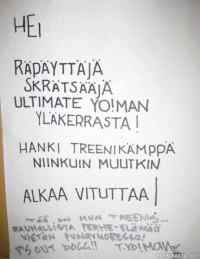 HEI
RÄPÄYTTÄJÄ
SKRÄTSÄÄJÄ
ULTIMATE YO!MAN
YLÄKERRASTA!
HANKI TREENIKÄMPPÄ
NIINKUIN MUUTKIN
ALKAA VITUTTAA!
TÄÄ ON MUN TREENIS
RAUHALLISTA PERHE-ELÄMÄÄ
VIETÄN
OUT DOGG!!